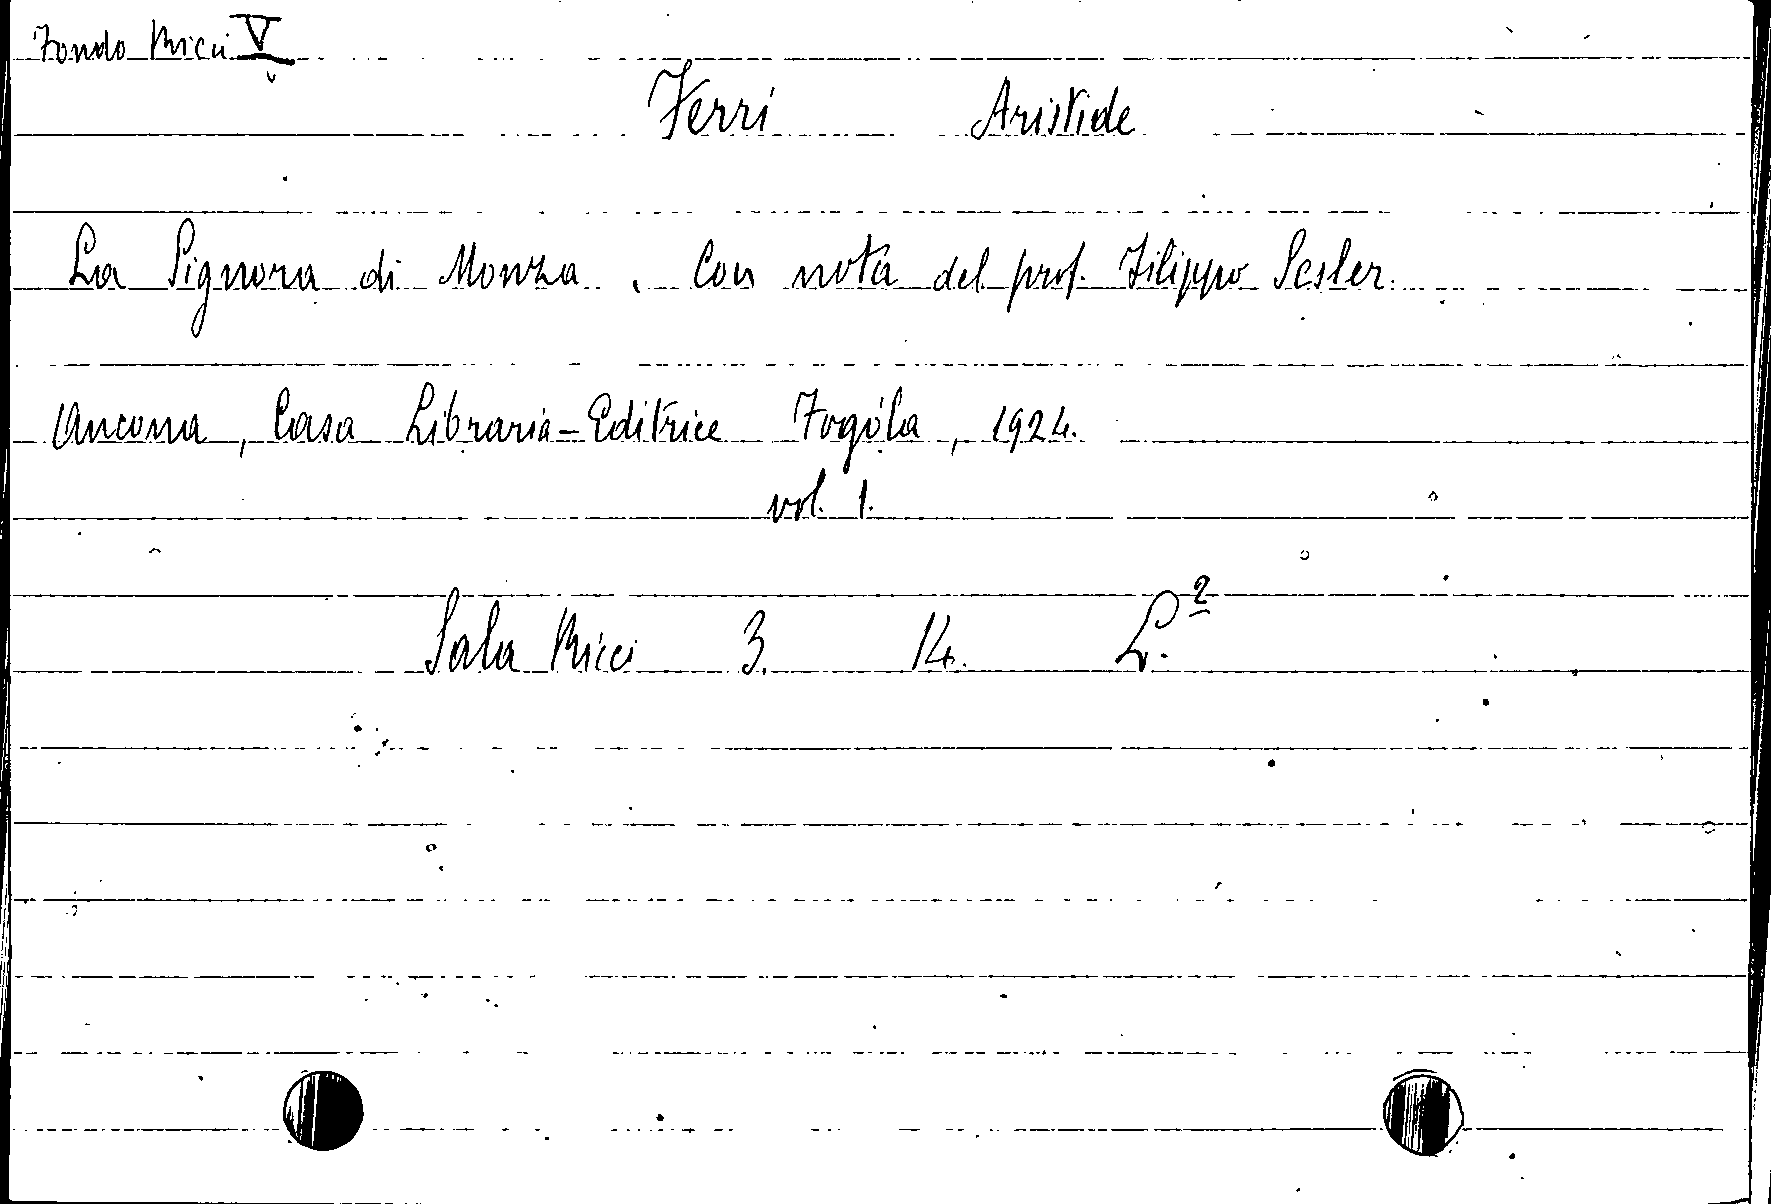 Fondo Ricci V
Ferri Aristide
La Signora di Monza. Con nota del prof. Filippo Sesler.
Ancona, Casa Libraria-Editrice Fogóla, 1924.
vol. 1.
Sala Ricci 3. 14. L.²